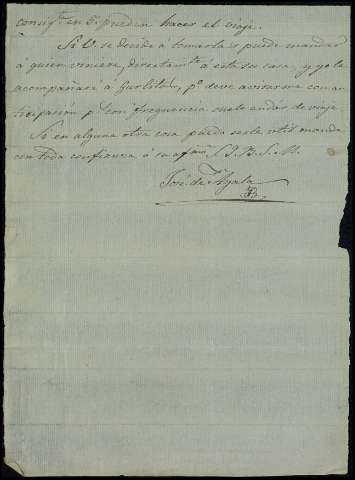 hacer el viaje.
Si V. se decide á tomarlas, puede mandar
á quien viniere, directamte á esta su casa, y yo le
acompañaré á pº debe avisarme con an
ticipacion pr con frequencia suelo andar de viaje.
Si en alguna otra cosa puedo serle util, mande
con toda confianza á su afmo S. Q. B. S. M.
José de Ayala